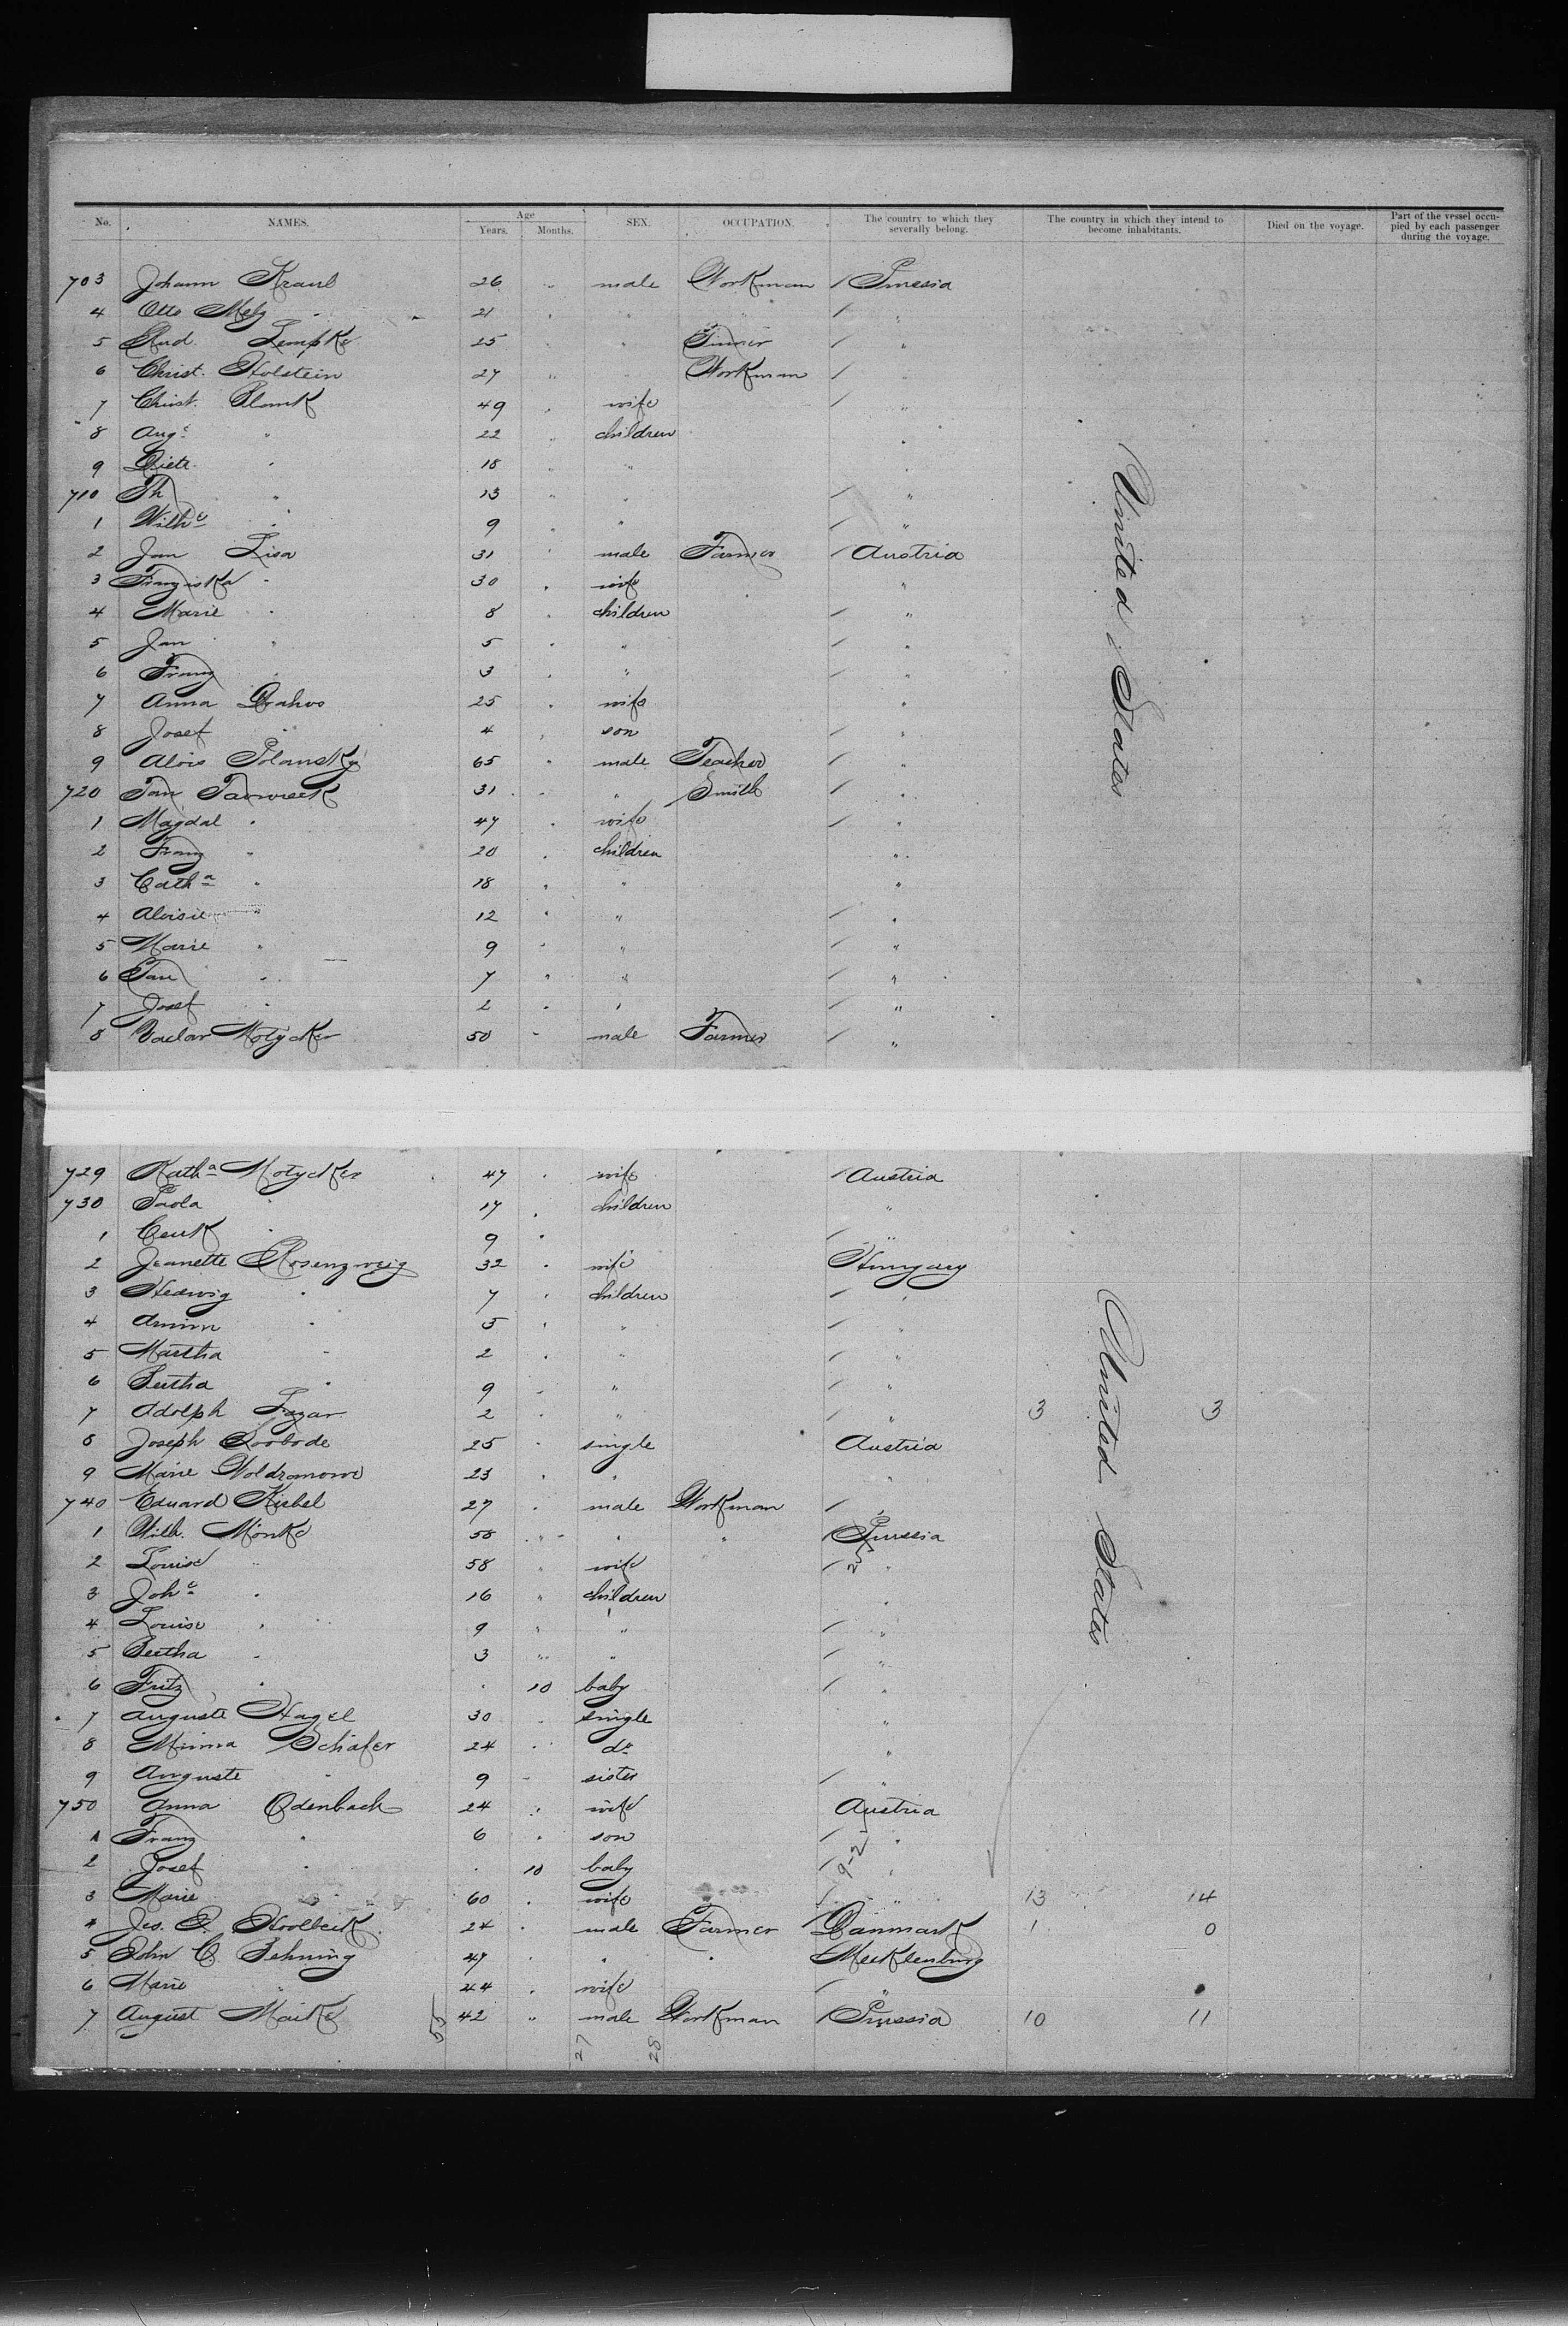 No. NAMES. Age Years. Months. SEX. OCCUPATION. The country to which they severally belong. The country in which they intend to become inhabitants. Died on the voyage. Part of the vessel occupied by each passenger during the voyage.
703 Johann Kraul 26 " male Workman / Prussia
4 Otto Metz 21 " " " / "
5 Rud. Lempke 25 " " Tinner / "
6 Christ. Holstein 27 " " Workman / "
7 Christ. Plamk 49 " wife / "
8 Auge " 22 " children "
9 Diete " 18 " " "
710 Th " 13 " " / "
1 Wilhe " 9 " " / "
2 Jan Lisa 31 " male Farmer / Austria
3 Franziska " 30 " wife "
4 Marie " 8 " children / "
5 Jan " 5 " " / "
6 Franz " 3 " " / "
7 Anna Drahos 25 " wife "
8 Josef " 4 " son / "
9 Alois Polansky 65 " male Teacher / "
720 Jan 31 " " Smith / "
1 Magdal " 47 " wife / "
2 Franz " 20 " children "
3 Catha " 18 " " "
4 Aloisie " 12 " " / "
5 Marie " 9 " " / "
6 Jan " 7 " " / "
7 Josef " 2 " " / "
8 Vaclav Motycka 50 " male Farmer / "
United States
729 Katha Motycka 47 " wife / Austria
730 Paola " 17 " children "
1 Cenk " 9 " / "
2 Jeanette Rosenzweig 32 " wife Hungary
3 Hedwig " 7 " children / "
4 Armin " 5 " " / "
5 Martha " 2 " " / "
6 Bertha " 9 " " / "
7 Adolph Lazar 2 " " / " 3 3
8 Joseph Svobode 25 " single Austria
9 Marie Woldranowe 23 " " "
740 Eduard Kiebel 27 " male Workman / "
1 Wilh. Mönke 58 " " " / Prussia
2 Louise " 58 " wife / "
3 Johe " 16 " children "
4 Louise " 9 " " / "
5 Bertha " 3 " " / "
6 Fritz " " 10 baby / "
7 Auguste Hagel 30 " single "
8 Minna Schäfer 24 " do "
9 Auguste " 9 " sister / "
750 Anna Odenback 24 " wife Austria
1 Franz " 6 " son / "
2 Josef " " 10 baby / "
3 Marie " 60 " wife / " 13 14
4 Jes. P. Hoolbeck 24 " male Farmer Danmark 1 0
5 John C Behning 47 " " " Mecklenburg
6 Marie " 44 " wife / "
7 August Maike 42 " male Workman / Prussia 10 11
United States
55 27 28